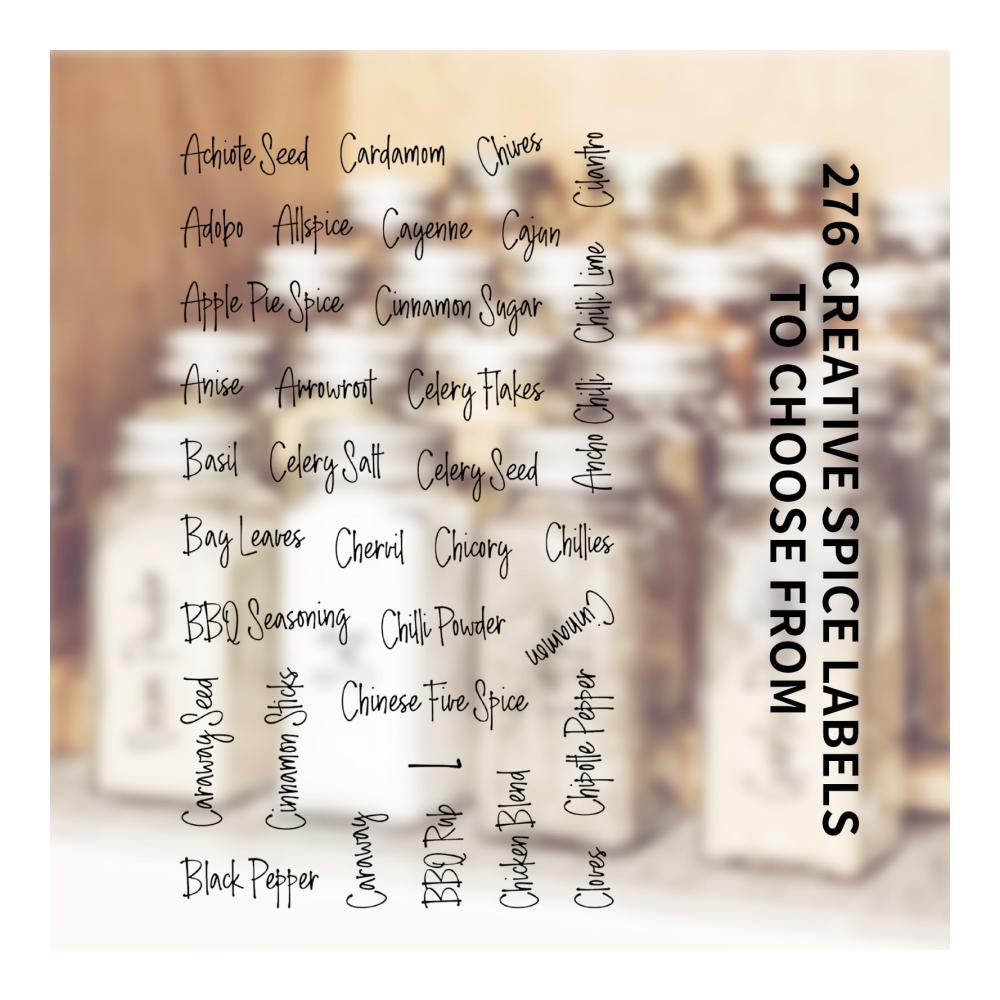 Achiote Seed Cardamom Chives
Cilantro
Adobo Allspice Cayenne Cajun
Chilli Lime
Apple Pie Spice Cinnamon Sugar
Anise Arrowroot Celery Flakes
Ancho Chilli
Basil Celery Salt Celery Seed
Bay Leaves Chervil Chicory Chillies
BBQ Seasoning Chilli Powder
Cinnamon
Caraway Seed
Cinnamon Sticks
Chinese Five Spice
Chipotle Pepper
Black Pepper
Caraway
BBQ Rub
Chicken Blend
Cloves
276 CREATIVE SPICE LABELS
TO CHOOSE FROM